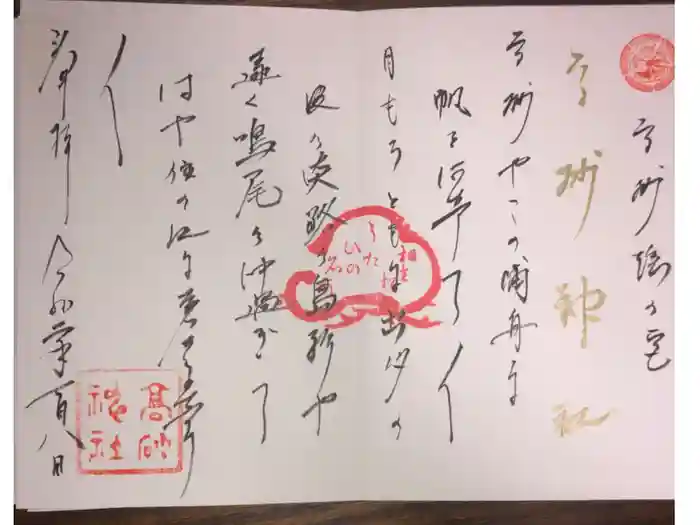 高砂謡の宅
高砂神社
高砂やこの浦舟に
帆を
月もろともに出汐の
波の淡路の島影や
遠く鳴尾の沖過ぎて
はや住の江に
奉拝
月
八日
相生
うた
いの
高砂
神社